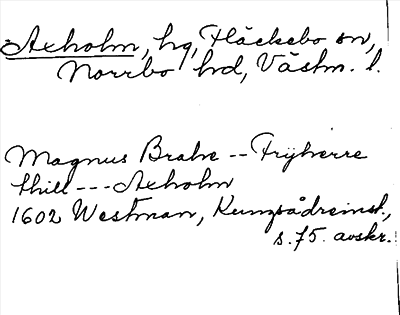 Axholm, hg, Fläckebo sn,
Norrbo hd, Västm. l.
Magnus Brahe -- Frijherre
thill --- Axholm
1602 Westman, Kungsådreinst.,
s. 75. avskr.